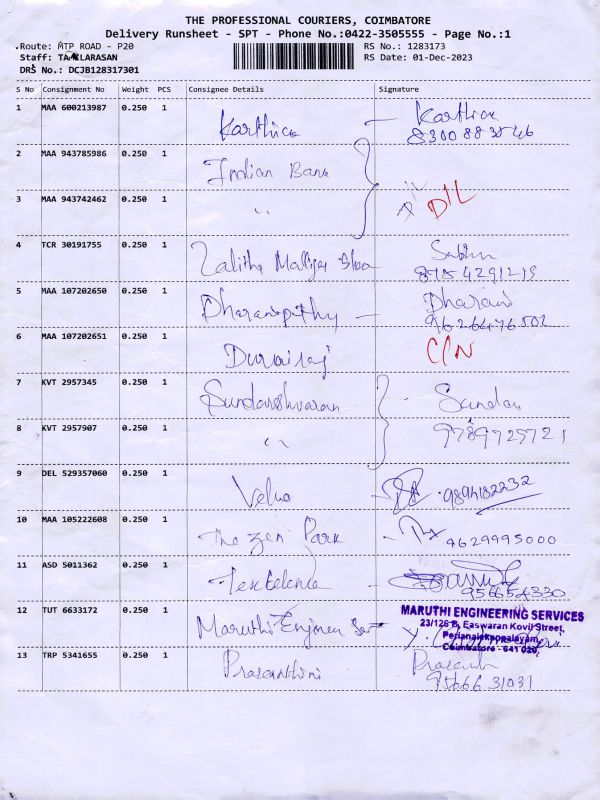 THE PROFESSIONAL COURIERS, COIMBATORE
Delivery Runsheet - SPT - Phone No.:0422-3505555 - Page No.:1
Route: MTP ROAD - P20
RS No.: 1283173
Staff:
RS Date: 01-Dec-2023
DRS No.: DCJB128317301
S No Consignment No Weight PCS Consignee Details Signature
1 MAA 600213987 0.250 1 Karthica - Karthica
2 MAA 943785986 0.250 1 Indian Bank
3 MAA 943742462 0.250 1 " D/L
4 TCR 30191755 0.250 1 Lalitha
5 MAA 107202650 0.250 1 Dharanipathy - Dharani
9626476502
6 MAA 107202651 0.250 1 Durairaj C/N
7 KVT 2957345 0.250 1 Sundareshvaran Sundar
8 KVT 2957907 0.250 1 " 9789725721
9 DEL 529357060 0.250 1 Velua 9894182232
10 MAA 105222608 0.250 1 The Zen Park 9629995000
11 ASD 5011362 0.250 1
12 TUT 6633172 0.250 1 Maruthi
MARUTHI ENGINEERING SERVICES
23/126-B, Easwaran Kovil Street,
Perianaickenpalayam,
Coimbatore - 641 020.
13 TRP 5341655 0.250 1 Prasanthini Prasanth
95666 31031